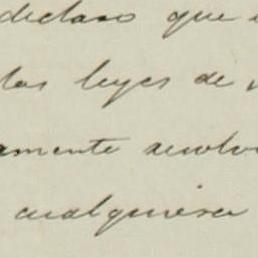 declaro que
las leyes de
amente
cualquiera